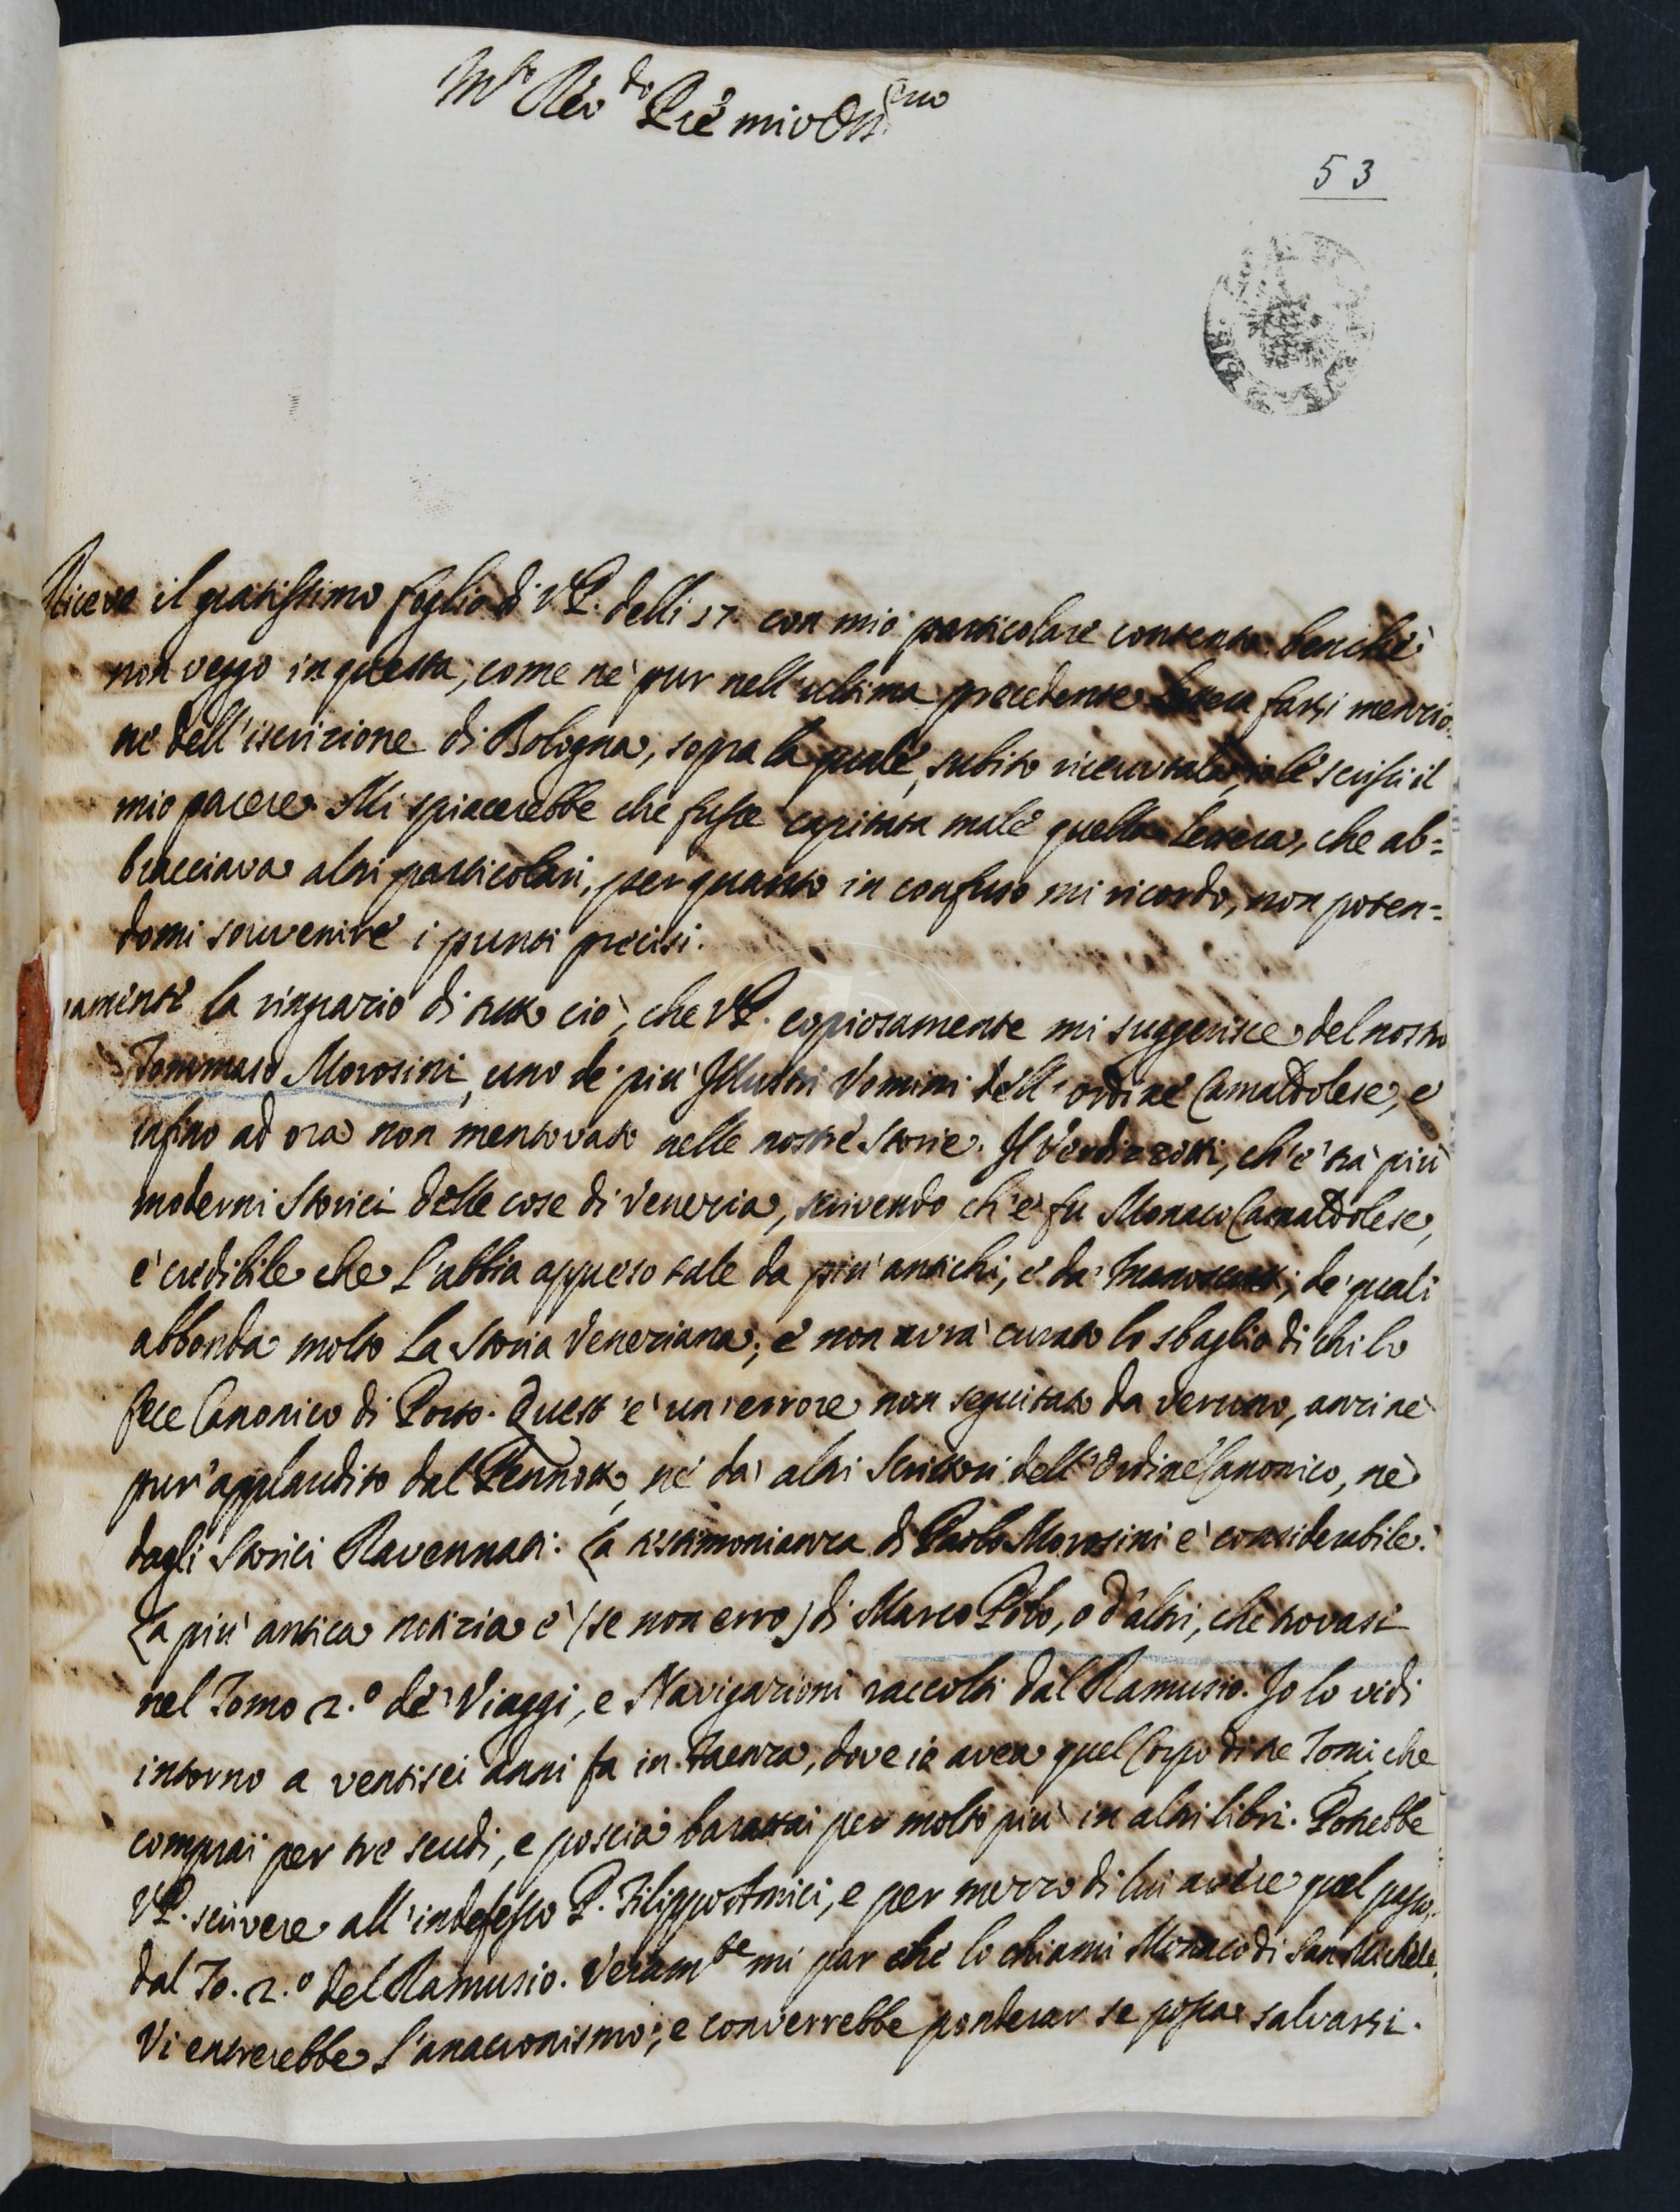 M.to Rev.do P.re mio Oss.mo
53
Ricevo il gratissimo foglio di V.P. delli 17. con mio particolare contento: benchè
non veggo in questa, come nè pur nell'ultima precedente lettera farsi menzio-
ne dell'iscrizione di Bologna, sopra la quale, subito ricevutala, io le scrissi il
mio parere. Mi spiacerebbe che fusse capitata male quella lettera, che ab=
bracciava altri particolari, per quanto in confuso mi ricordo, non poten=
domi souvenire i punti precisi.
vamente la ringrazio di tutto ciò, che V.P. copiosamente mi suggerisce del nostro
Tommaso Morosini, uno de' più Illustri Vomini dell'ordine Camaldolese, e
infino ad ora non mentovato nelle nostre Storie. Il Verdizzotti, ch'è trà più
moderni Storici delle cose di Venezia, scrivendo ch'e' fu Monaco Camaldolese,
è credibile che l'abbia appreso tale da più antichi, e da' manoscritti, de' quali
abbonda molto la Storia Veneziana; e non avrà curato lo sbaglio di chi lo
fece Canonico di Porto. Quest'è un'errore non seguitato da veruno, anzi nè
pur'applaudito dal Pennotto, nè da' altri Scrittori dell'Ordine Canonico, nè
dagli Storici Ravennati. La testimonianza di Paolo Morosini è considerabile.
La più antica notizia è (se non erro) di Marco Polo, o d'altri, che trovasi
nel Tomo 2.º de' Viaggi, e Navigazioni raccolti dal Ramusio. Io lo vidi
intorno a ventisei anni fa in Faenza, dove io avea quel Corpo di tre Tomi, che
comprai per tre scudi, e poscia barattai per molto più in altri libri. Potrebbe
V.P. scrivere all'indefesso P. Filippo Amici, e per mezzo di lui avere quel passo,
dal To. 2.º del Ramusio. Veram.te mi par che lo chiami Monaco di San Michele.
Vi entrerebbe l'anacronismo; e converrebbe ponderar se possa salvarsi.